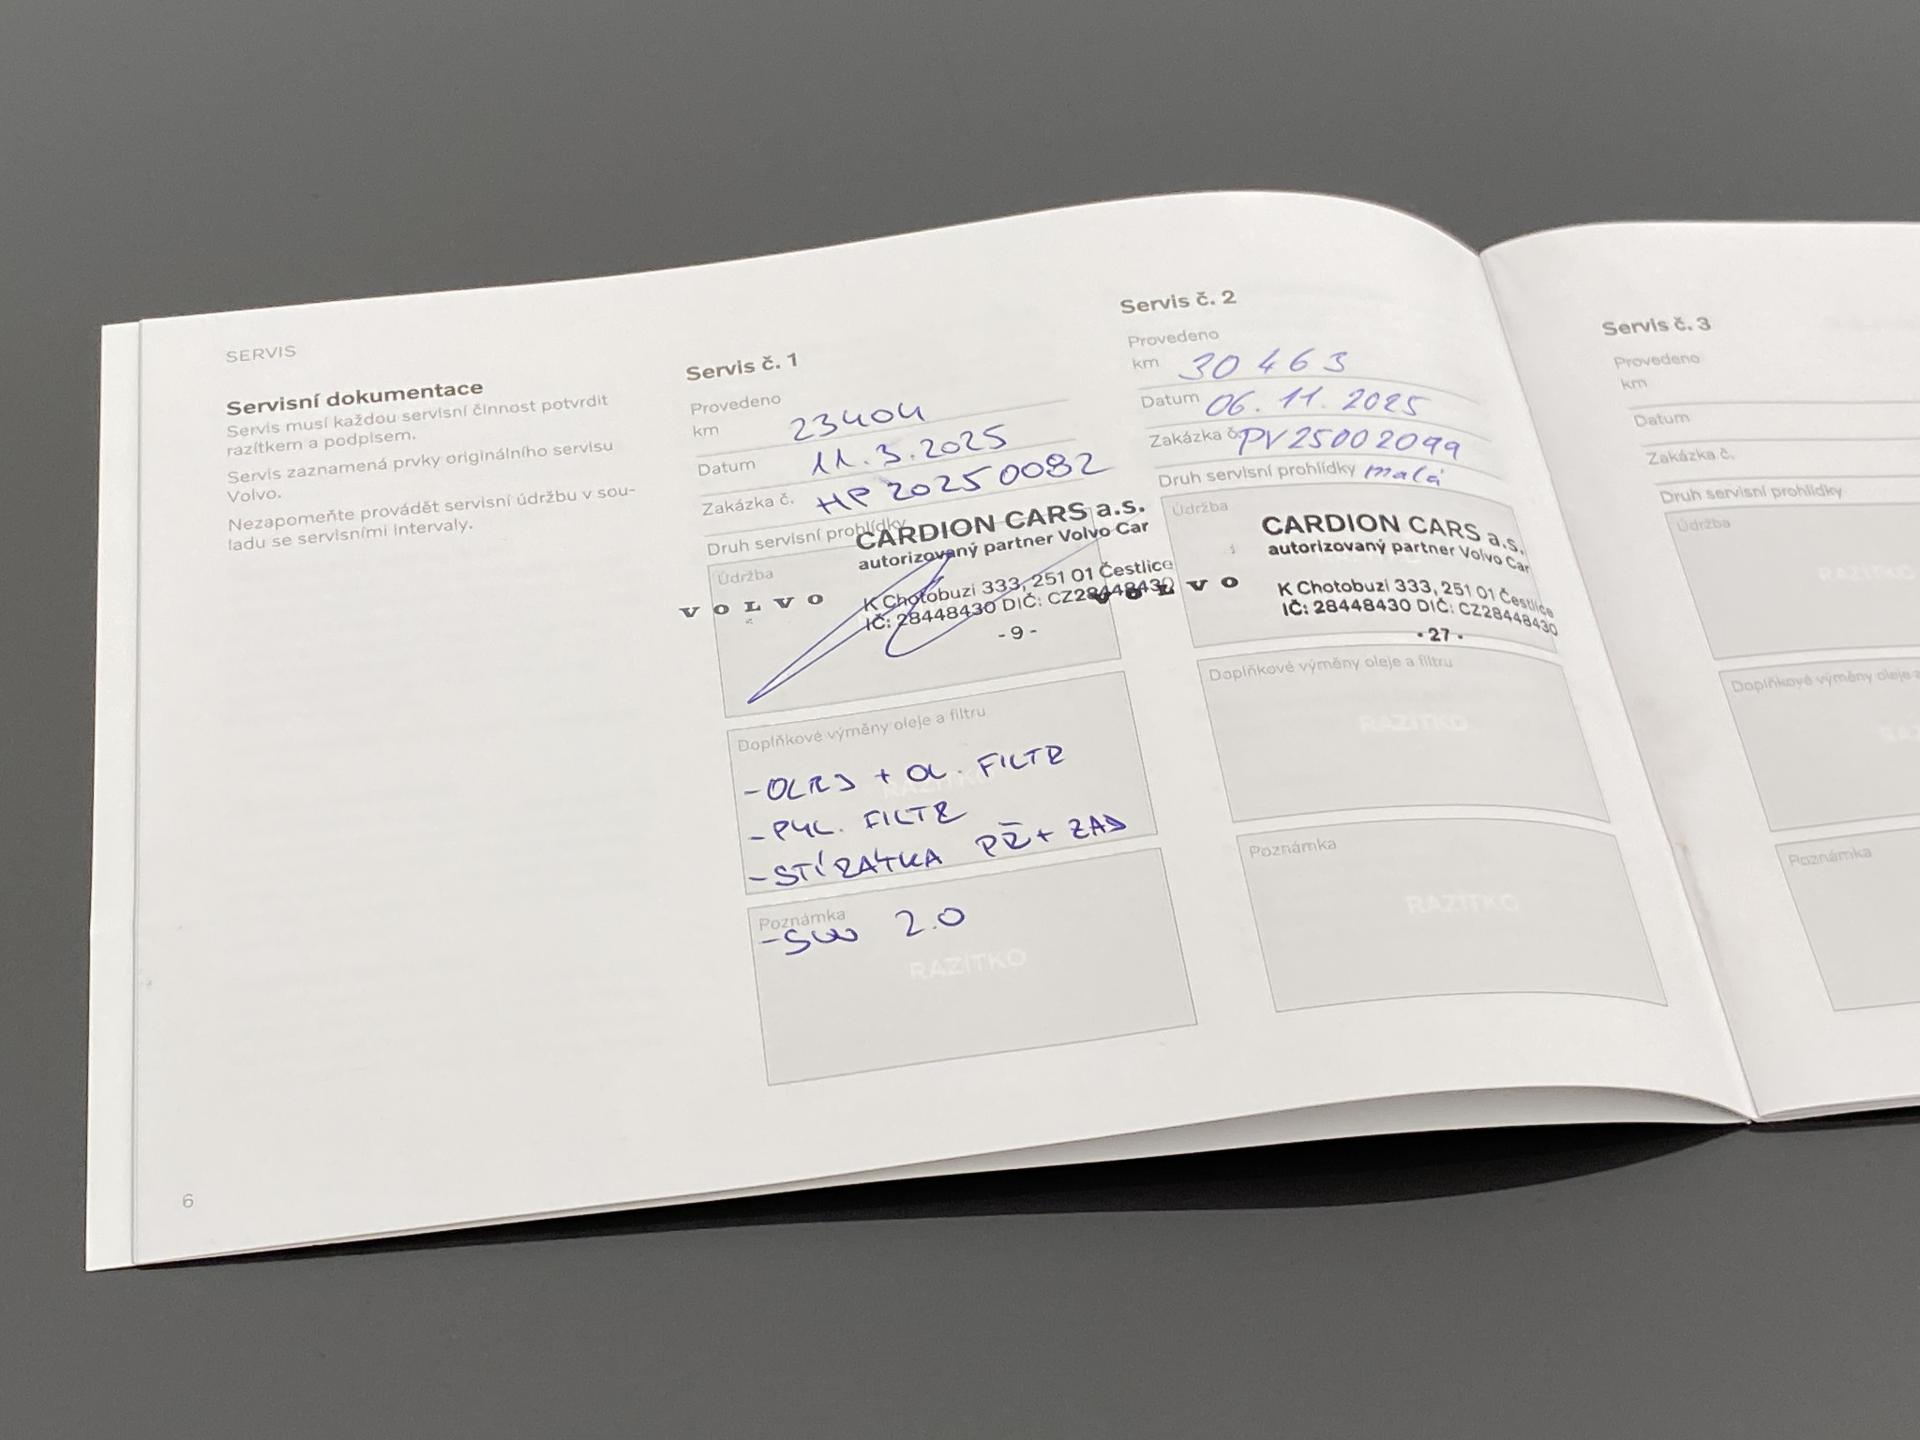 SERVIS
Servisní dokumentace
Servis musí každou servisní činnost potvrdit
razítkem a podpisem.
Servis zaznamená prvky originálního servisu
Volvo.
Nezapomeňte provádět servisní údržbu v sou-
ladu se servisními intervaly.
6
Servis č. 1
Provedeno
km 23404
Datum 11.3.2025
Zakázka č. HP 20250082
Druh servisní prohlídky
Údržba
CARDION CARS a.s.
autorizovaný partner Volvo Car
VOLVO
K Chotobuzi 333, 251 01 Čestlice
IČ: 28448430 DIČ: CZ28448430
- 9 -
Doplňkové výměny oleje a filtru
- OLEJ + OL. FILTR
- PYL. FILTR
- STÍRÁTKA PŘ + ZAD
Poznámka
- SW 2.0
RAZÍTKO
Servis č. 2
Provedeno
km 30463
Datum 06.11.2025
Zakázka č. PV25002099
Druh servisní prohlídky malá
Údržba
CARDION CARS a.s.
autorizovaný partner Volvo Car
VOLVO
K Chotobuzi 333, 251 01 Čestlice
IČ: 28448430 DIČ: CZ28448430
- 27 -
Doplňkové výměny oleje a filtru
RAZÍTKO
Poznámka
RAZÍTKO
Servis č. 3
Provedeno
km
Datum
Zakázka č.
Druh servisní prohlídky
Údržba
RAZÍTKO
Doplňkové výměny oleje a
Poznámka